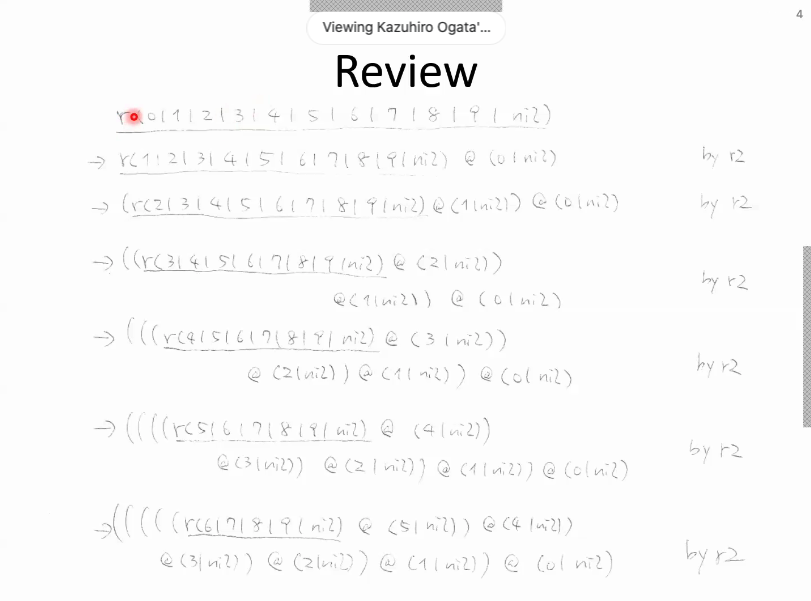 4
Viewing Kazuhiro Ogata'...
Review
r(0|1|2|3|4|5|6|7|8|9|nil)
→ r(1|2|3|4|5|6|7|8|9|nil) @ (0|nil) by r2
→ (r(2|3|4|5|6|7|8|9|nil) @ (1|nil)) @ (0|nil) by r2
→ ((r(3|4|5|6|7|8|9|nil) @ (2|nil))
@ (1|nil)) @ (0|nil) by r2
→ (((r(4|5|6|7|8|9|nil) @ (3|nil))
@ (2|nil)) @ (1|nil)) @ (0|nil) by r2
→ ((((r(5|6|7|8|9|nil) @ (4|nil))
@ (3|nil)) @ (2|nil)) @ (1|nil)) @ (0|nil) by r2
→ (((((r(6|7|8|9|nil) @ (5|nil)) @ (4|nil))
@ (3|nil)) @ (2|nil)) @ (1|nil)) @ (0|nil) by r2